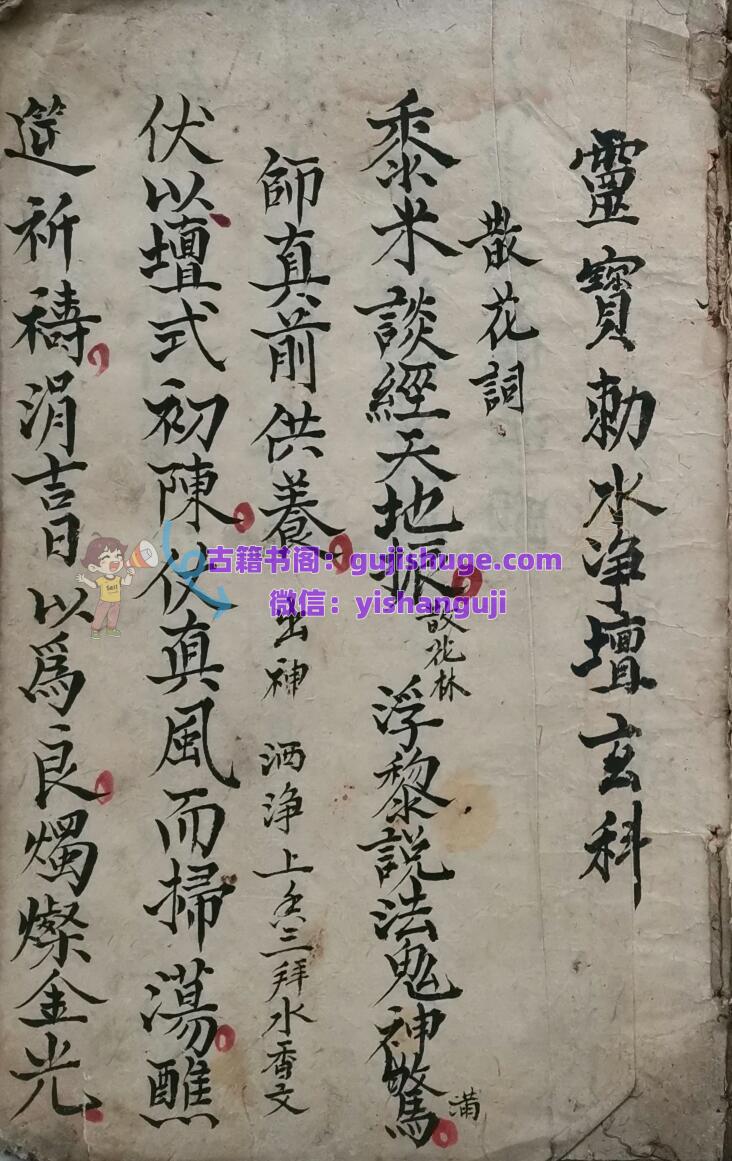 靈寳勅水净壇玄科
散花詞
黍米談經天地振 散花林 浮黎說法鬼神驚 滿
師真前供養 出神 洒净 上香三拜水香文
伏以壇式初陳仗真風而掃蕩醮
筵祈禱涓吉日以爲良燭燦金光
古籍书阁：gujishuge.com
微信：yishanguji